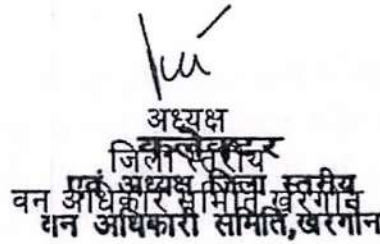 अध्यक्ष
कलेक्टर
जिला स्तरीय
एवं अध्यक्ष जिला स्तरीय
वन अधिकार समिति, खरगोन
वन अधिकारी समिति, खरगोन